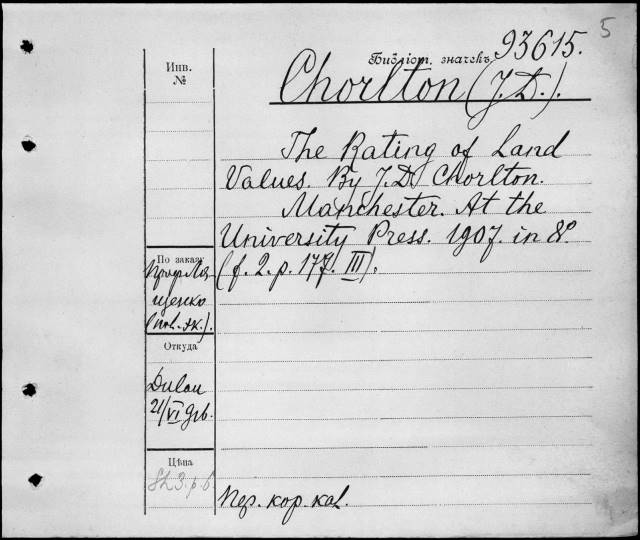 5
93615.
Инв.
№
Библіот. значекъ
Chorlton (J. D.).
The Rating of Land
Values. By J. D. Chorlton.
Manchester. At the
University Press. 1907. in 8°.
(f. 2. p. 177. III).
По заказу
Проф. Ля-
щенко
Откуда
Dulau
21/VI
Цѣна
кор. kal.